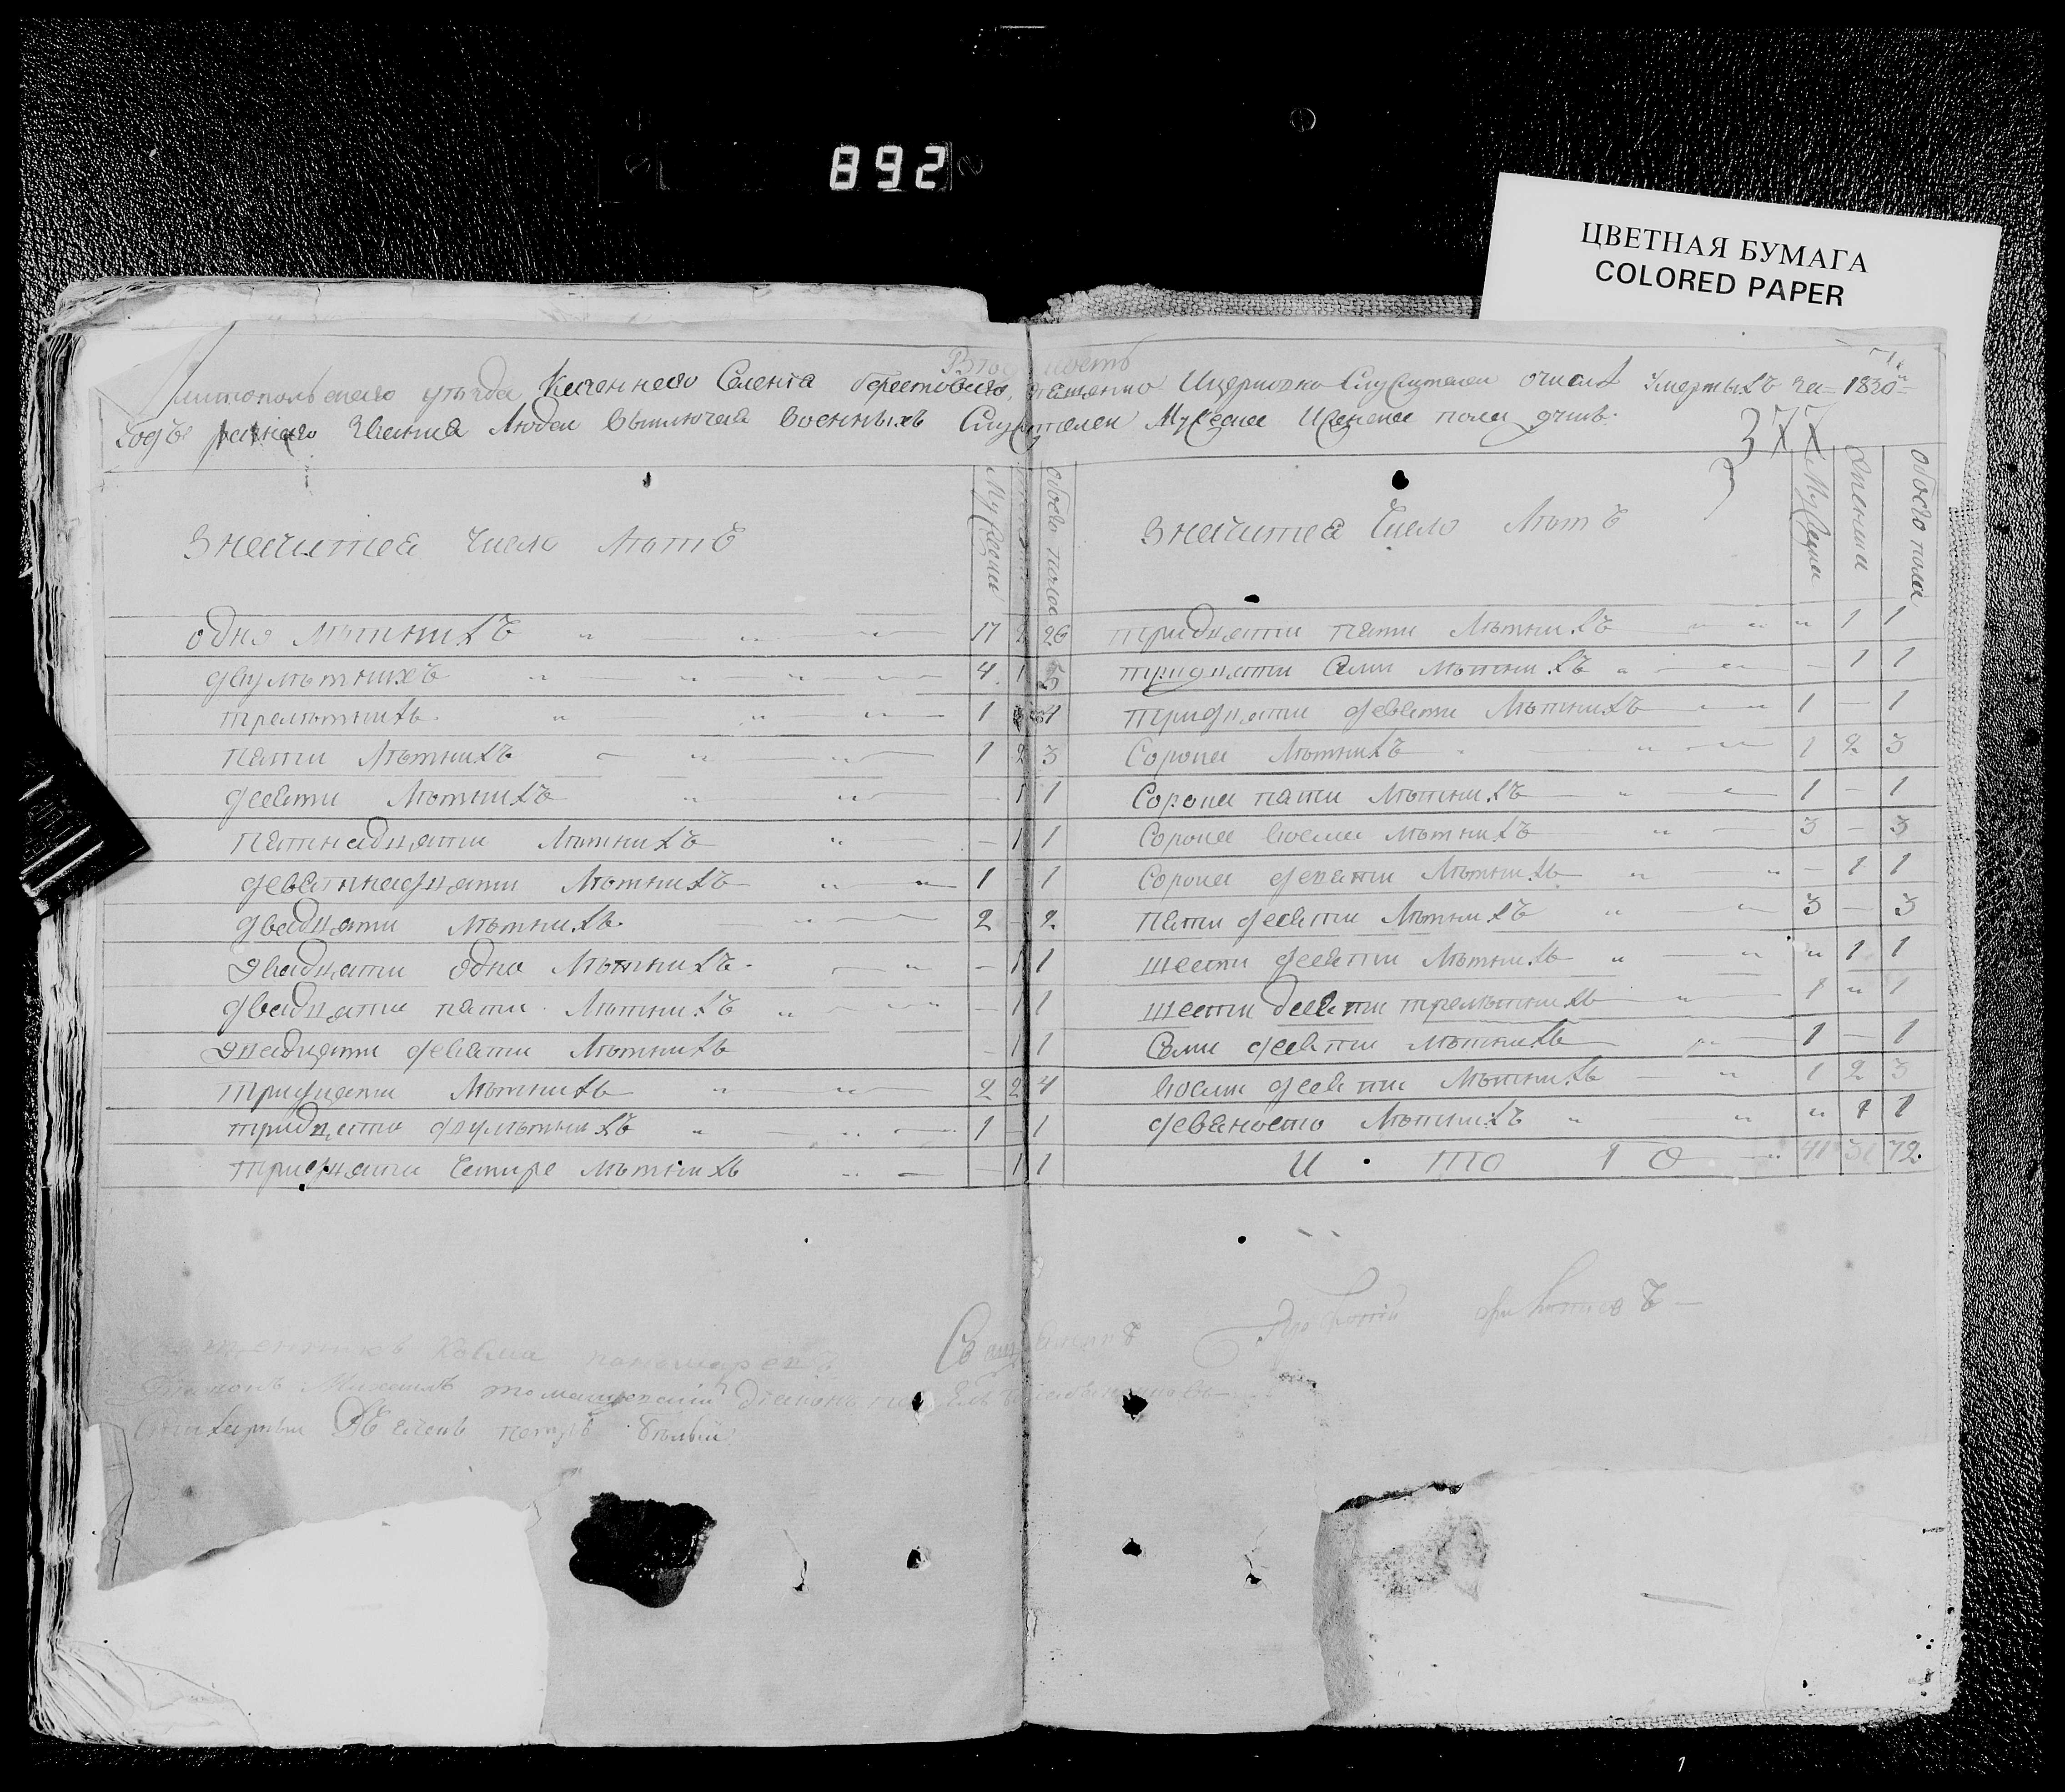 892
ЦВЕТНАЯ БУМАГА
COLORED PAPER
уѣзда Казеннаго Селенія Берестоваго, Священно Ицерковно Служителей очислѣ Умершыхъ за 1830й
Годъ разнаго Званія Людей Выключая Военныхъ Служителей Мужеска ИЖенска пола душъ.
377
Значитса Число Лѣтъ
Мужеска
обоего пола
одно Лѣтнихъ 17 26
двулѣтнихъ 4 1 5
трелѣтнихъ 1 3 4
пяти Лѣтнихъ 1 2 3
десяти Лѣтнихъ - 1 1
пятнадцяти Лѣтнихъ - 1 1
девятнадцяти Лѣтнихъ 1 - 1
двадцяти Лѣтнихъ 2 - 2
двадцяти одно Лѣтнихъ - 1 1
двадцяти пяти Лѣтнихъ - 1 1
двадцяти девяти Лѣтнихъ - 1 1
тридцяти Лѣтнихъ 2 2 4
тридцяти двулѣтнихъ 1 - 1
тридцяти Четыре лѣтнихъ - 1 1
Значитса Число Лѣтъ
Мужеска
Женска
обоего пола
тридцяти пяти Лѣтнихъ " 1 1
тридцяти Семи Лѣтнихъ - 1 1
тридцяти девяти Лѣтнихъ 1 - 1
Сорока Лѣтнихъ 1 2 3
Сорока пяти Лѣтнихъ 1 - 1
Сорока восми Лѣтнихъ 3 - 3
Сорока девяти Лѣтнихъ - 1 1
пяти десяти Лѣтнихъ 3 - 3
шести десяти Лѣтнихъ " 1 1
шести десяти трелѣтнихъ 1 " 1
Семи десяти Лѣтнихъ 1 - 1
восми десяти Лѣтнихъ 1 2 3
девяносто Лѣтнихъ " 1 1
И то го 41 31 72.
Косма
Священникъ
Михаилъ
петръ Бѣлый